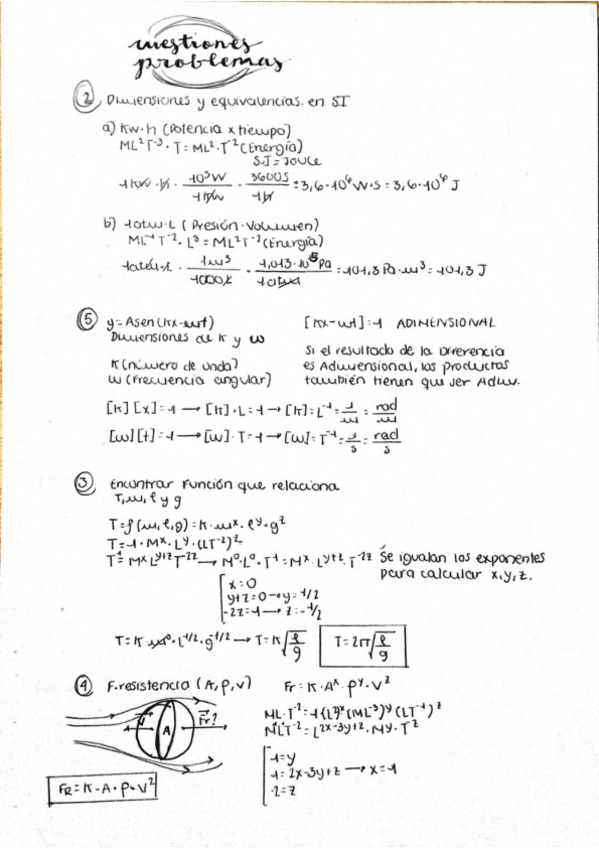 cuestiones
problemas
② Dimensiones y equivalencias. en SI
a) Kw·h (Potencia x tiempo)
ML²T⁻³ · T = ML²·T⁻² (Energía)
S.I = Joule
1 kW · h · 10³W / 1 kW · 3600s / 1 h = 3,6·10⁶ W·s = 3,6·10⁶ J
b) 1 atm·L (Presión·Volumen)
ML⁻¹T⁻² · L³ = ML²T⁻² (Energía)
1 atm·L · 1m³ / 1000L · 1,013·10⁵ Pa / 1 atm = 101,3 Pa·m³ = 101,3 J
⑤ y = Asen(kx-wt) [kx-wt] = 1 ADIMENSIONAL
Dimensiones de K y w
Si el resultado de la Diferencia
es Adimensional, los productos
también tienen que ser Adim.
K (número de onda)
w (Frecuencia angular)
[k] [x] = 1 → [k] · L = 1 → [k] = L⁻¹ = 1/m = rad/m
[w] [t] = 1 → [w] · T = 1 → [w] = T⁻¹ = 1/s = rad/s
③ Encontrar Función que relaciona
T, m, l y g
T = f (m, l, g) = K · mˣ · lʸ · gᶻ
T = 1 · Mˣ · Lʸ · (LT⁻²)ᶻ
T¹ = Mˣ Lʸ⁺ᶻ T⁻²ᶻ → M⁰·L⁰·T¹ = Mˣ·Lʸ⁺ᶻ·T⁻²ᶻ Se igualan los exponentes
para calcular x, y, z.
x = 0
y+z = 0 → y = 1/2
-2z = 1 → z = -1/2
T = K · m⁰ · L¹/² · g⁻¹/² → T = K √l/g T = 2π √l/g
④ F. resistencia (A, ρ, v) Fr = K · Aˣ · ρʸ · vᶻ
ML·T⁻² = 1 (L²)ˣ (ML⁻³)ʸ (LT⁻¹)ᶻ
M¹L¹T⁻² = L²ˣ⁻³ʸ⁺ᶻ · Mʸ · T⁻ᶻ
A
Fr?
1 = y
1 = 2x-3y+z → x = 1
-2 = z
FR = K · A · ρ · v²